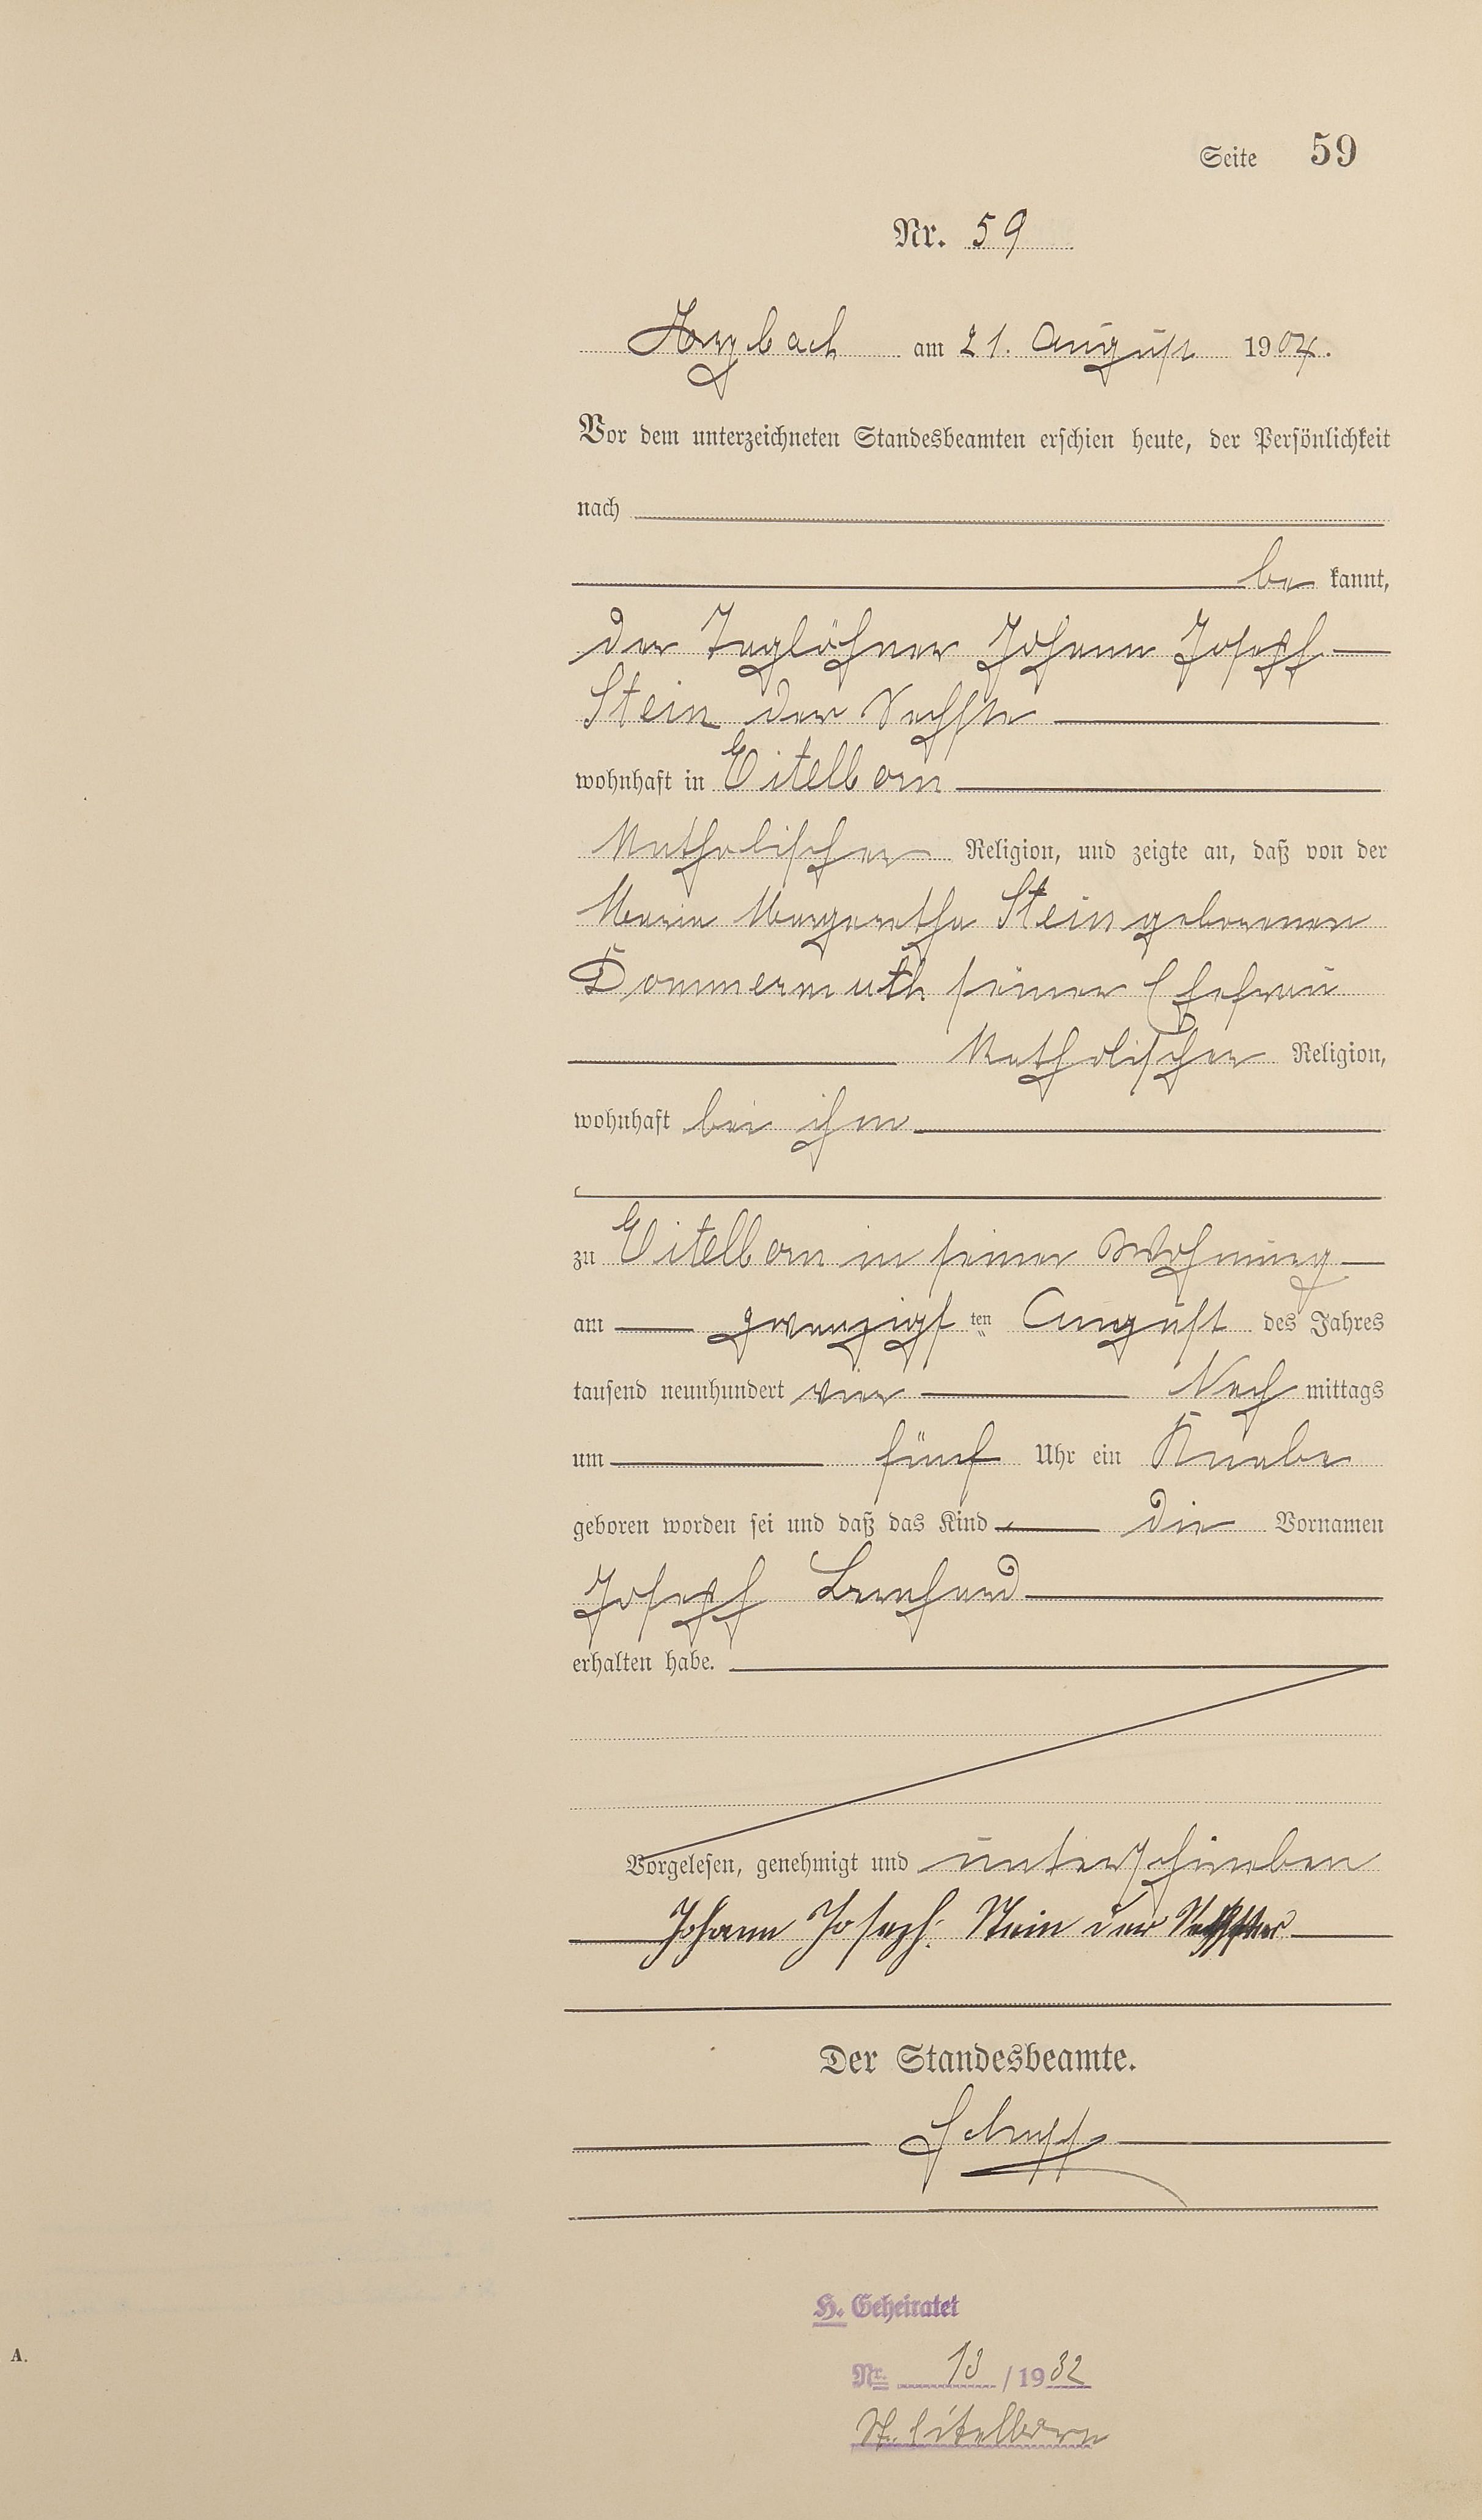 Seite 59
Nr. 59
Arzbach am 21. August 1904.
Vor dem unterzeichneten Standesbeamten erschien heute, der Persönlichkeit
nach
be kannt,
der Taglöhner Johann Joseph
Stein der Sechste
wohnhaft in Eitelborn
katholischer Religion, und zeigte an, daß von der
Maria Margaretha Stein geborenen
Dommermuth seiner Ehefrau
katholischer Religion,
wohnhaft bei ihm
zu Eitelborn in seiner Wohnung
am zwanzigsten August des Jahres
tausend neunhundert vier Nach mittags
um fünf Uhr ein Knabe
geboren worden sei und daß das Kind die Vornamen
Joseph Bernhard
erhalten habe.
Vorgelesen, genehmigt und unterschrieben
Johann Joseph Stein der Sechster
Der Standesbeamte.
Schupp
H. Geheiratet
Nr. 13 / 1932
St. Eitelborn
A.